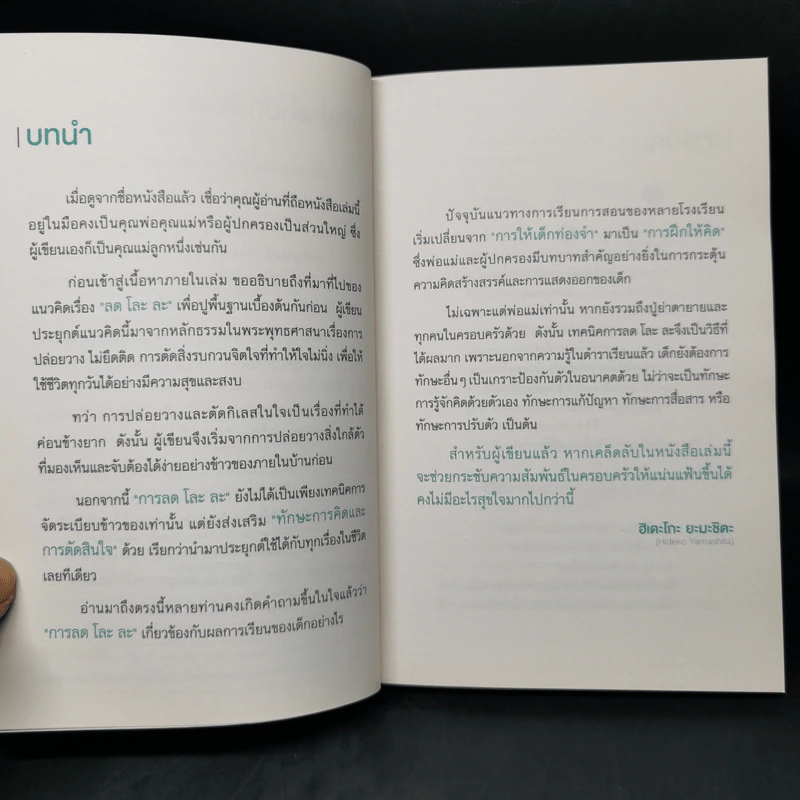 บทนำ
เมื่อดูจากชื่อหนังสือแล้ว เชื่อว่าคุณผู้อ่านที่ถือหนังสือเล่มนี้
อยู่ในมือคงเป็นคุณพ่อคุณแม่หรือผู้ปกครองเป็นส่วนใหญ่ ซึ่ง
ผู้เขียนเองก็เป็นคุณแม่ลูกหนึ่งเช่นกัน
ก่อนเข้าสู่เนื้อหาภายในเล่ม ขออธิบายถึงที่มาที่ไปของ
แนวคิดเรื่อง "ลด โละ ละ" เพื่อปูพื้นฐานเบื้องต้นกันก่อน ผู้เขียน
ประยุกต์แนวคิดนี้มาจากหลักธรรมในพระพุทธศาสนาเรื่องการ
ปล่อยวาง ไม่ยึดติด การตัดสิ่งรบกวนจิตใจที่ทำให้ใจไม่นิ่ง เพื่อให้
ใช้ชีวิตทุกวันได้อย่างมีความสุขและสงบ
ทว่า การปล่อยวางและตัดกิเลสในใจเป็นเรื่องที่ทำได้
ค่อนข้างยาก ดังนั้น ผู้เขียนจึงเริ่มจากการปล่อยวางสิ่งใกล้ตัว
ที่มองเห็นและจับต้องได้ง่ายอย่างข้าวของภายในบ้านก่อน
นอกจากนี้ "การลด โละ ละ" ยังไม่ได้เป็นเพียงเทคนิคการ
จัดระเบียบข้าวของเท่านั้น แต่ยังส่งเสริม "ทักษะการคิดและ
การตัดสินใจ" ด้วย เรียกว่านำมาประยุกต์ใช้ได้กับทุกเรื่องในชีวิต
เลยทีเดียว
อ่านมาถึงตรงนี้หลายท่านคงเกิดคำถามขึ้นในใจแล้วว่า
"การลด โละ ละ" เกี่ยวข้องกับผลการเรียนของเด็กอย่างไร
ปัจจุบันแนวทางการเรียนการสอนของหลายโรงเรียน
เริ่มเปลี่ยนจาก "การให้เด็กท่องจำ" มาเป็น "การฝึกให้คิด"
ซึ่งพ่อแม่และผู้ปกครองมีบทบาทสำคัญอย่างยิ่งในการกระตุ้น
ความคิดสร้างสรรค์และการแสดงออกของเด็ก
ไม่เฉพาะแต่พ่อแม่เท่านั้น หากยังรวมถึงปู่ย่าตายายและ
ทุกคนในครอบครัวด้วย ดังนั้น เทคนิคการลด โละ ละจึงเป็นวิธีที่
ได้ผลมาก เพราะนอกจากความรู้ในตำราเรียนแล้ว เด็กยังต้องการ
ทักษะอื่นๆ เป็นเกราะป้องกันตัวในอนาคตด้วย ไม่ว่าจะเป็นทักษะ
การรู้จักคิดด้วยตัวเอง ทักษะการแก้ปัญหา ทักษะการสื่อสาร หรือ
ทักษะการปรับตัว เป็นต้น
สำหรับผู้เขียนแล้ว หากเคล็ดลับในหนังสือเล่มนี้
จะช่วยกระชับความสัมพันธ์ในครอบครัวให้แน่นแฟ้นขึ้นได้
คงไม่มีอะไรสุขใจมากไปกว่านี้
ฮิเดะโกะ ยะมะชิตะ
(Hideko Yamashita)